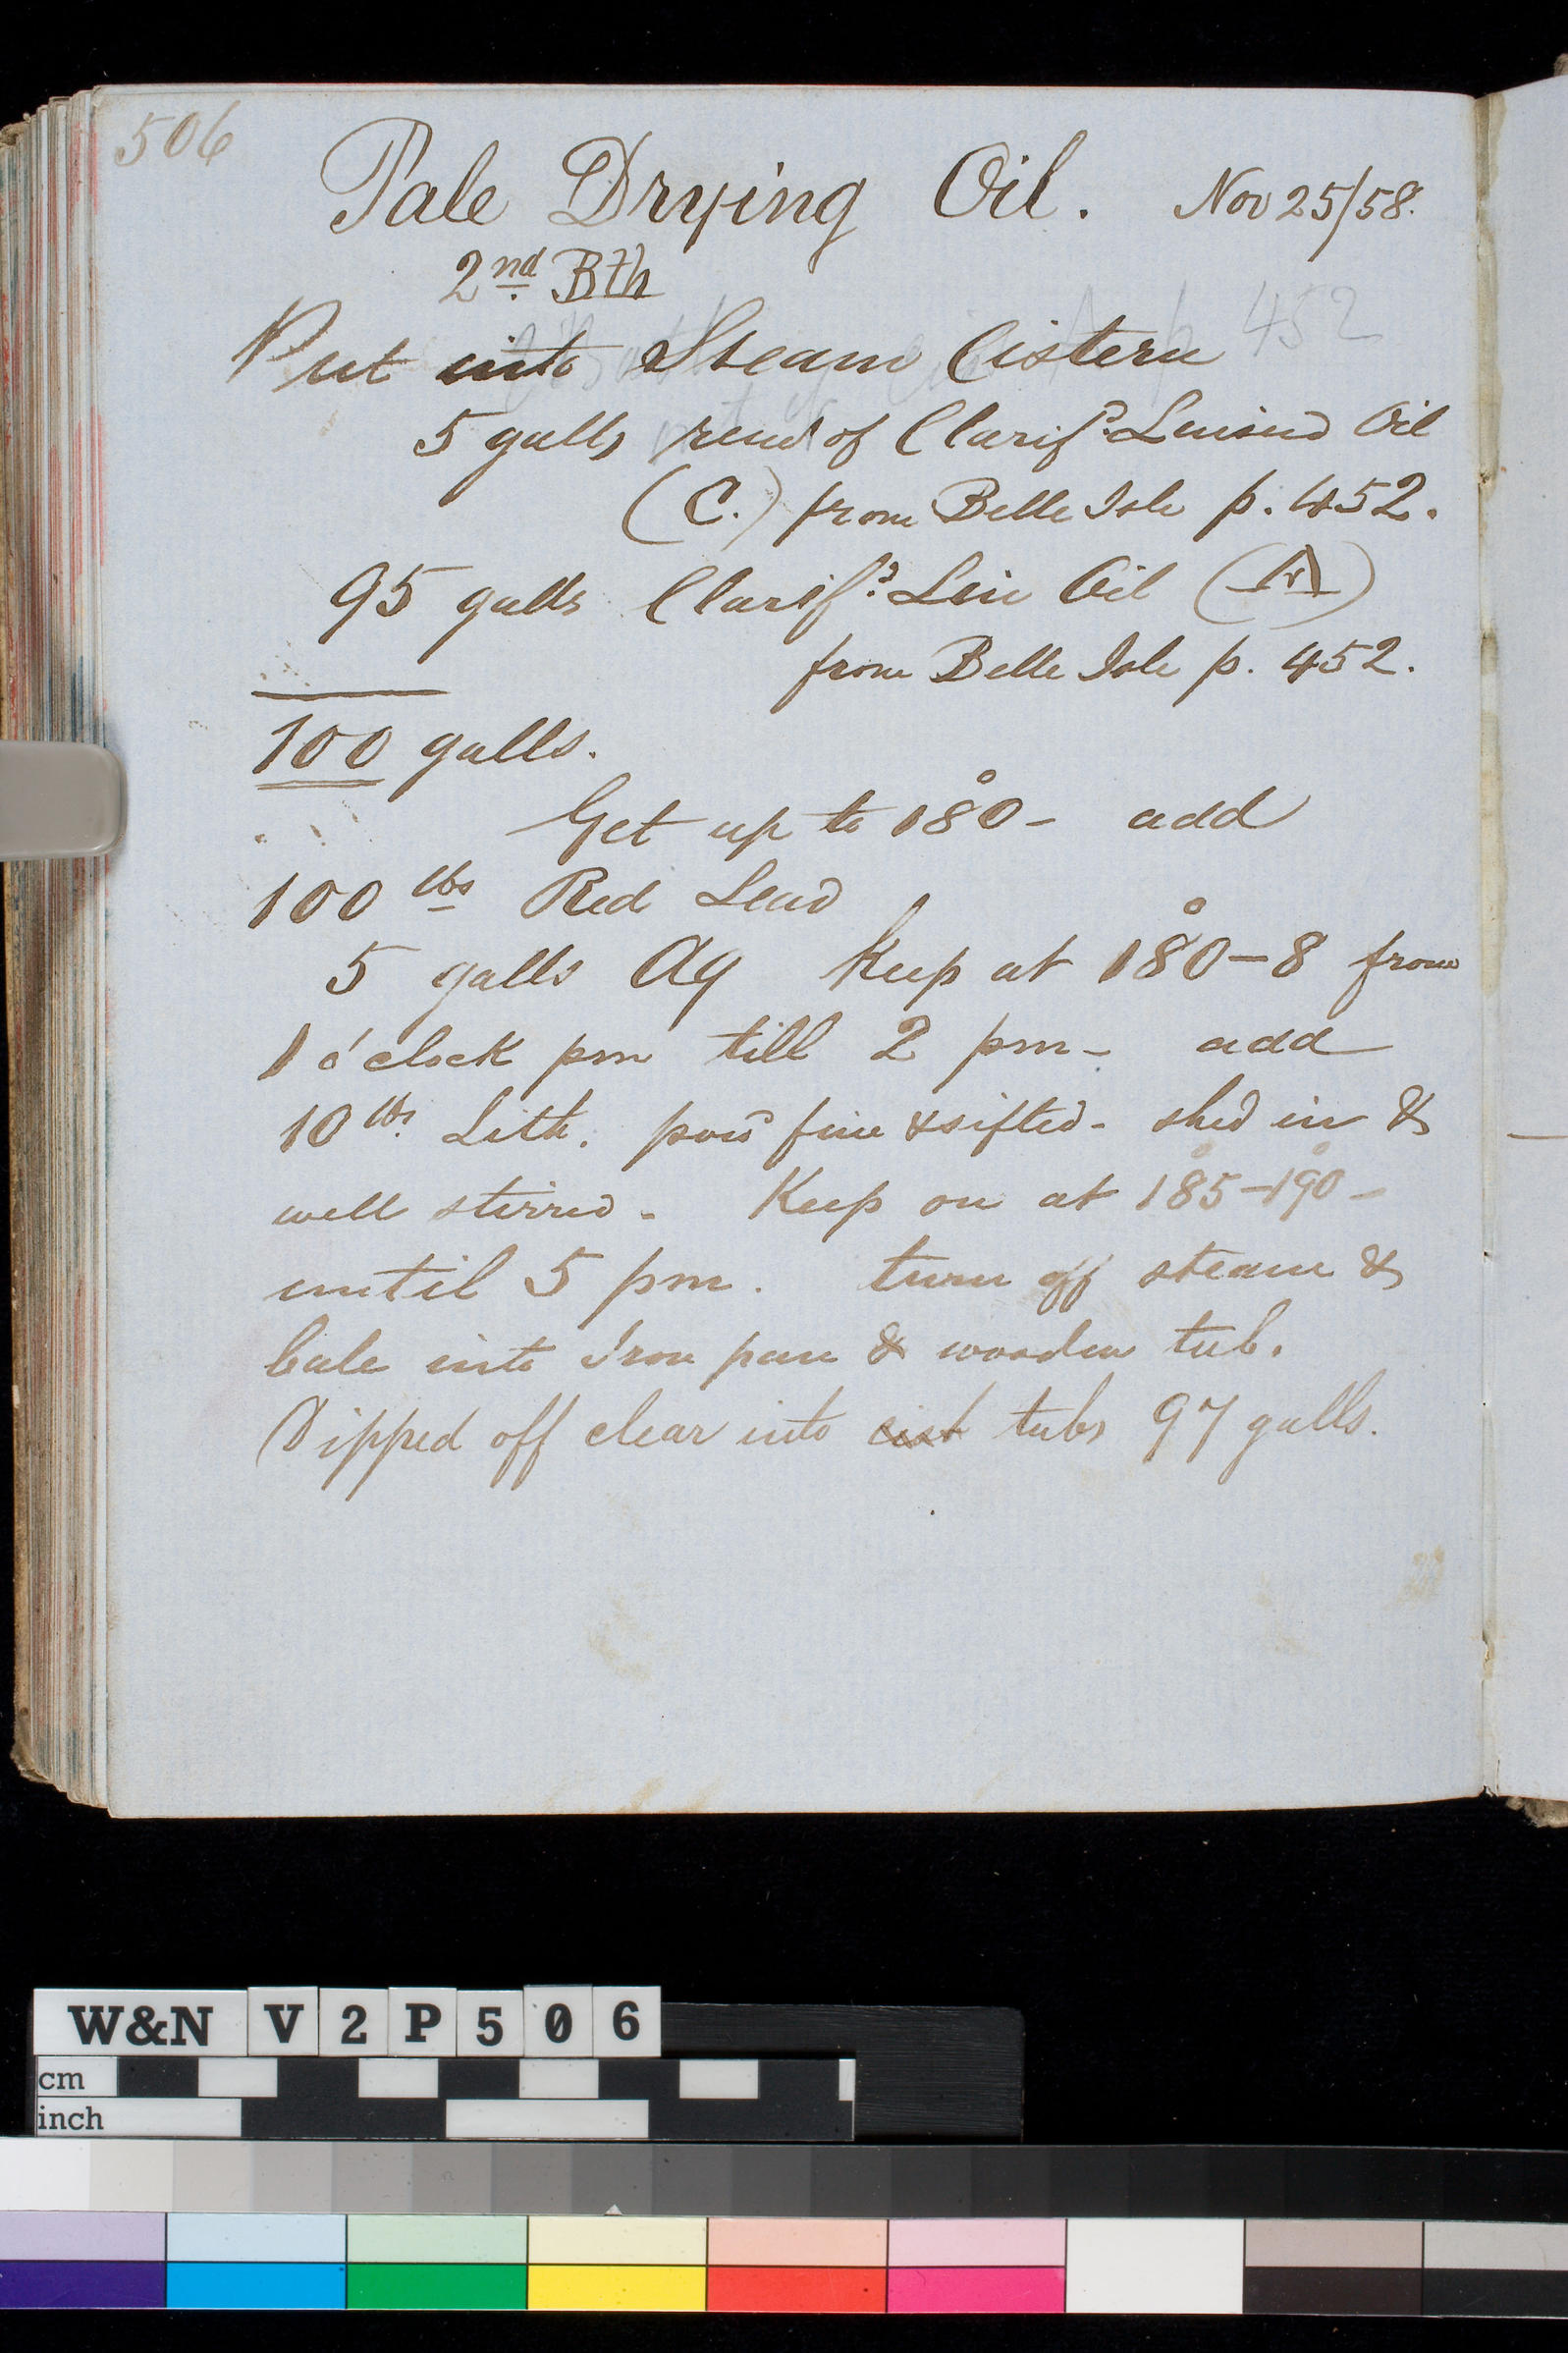 506
Pale Drying Oil. Nov 25/58.
2nd Bth
452
Put into Steam Cistern
5 galls remr of Clarifd Linseed Oil
(C.) from Belle Isle p. 452.
95 galls Clarifd Lin Oil (A)
from Belle Isle p. 452.
100 galls.
Get up to 180° - add
100 lbs Red Lead
5 galls Aq Keep at 180°-8 from
1 o'clock pm till 2 pm - add
10 lbs. Lith. powd fine & sifted - shed in &
well stirred - Keep on at 185°-190° -
until 5 pm. turn off steam &
bale into Iron pan & wooden tub.
Dipped off clear into cist tubs 97 galls.
W&N V2P506
cm
inch